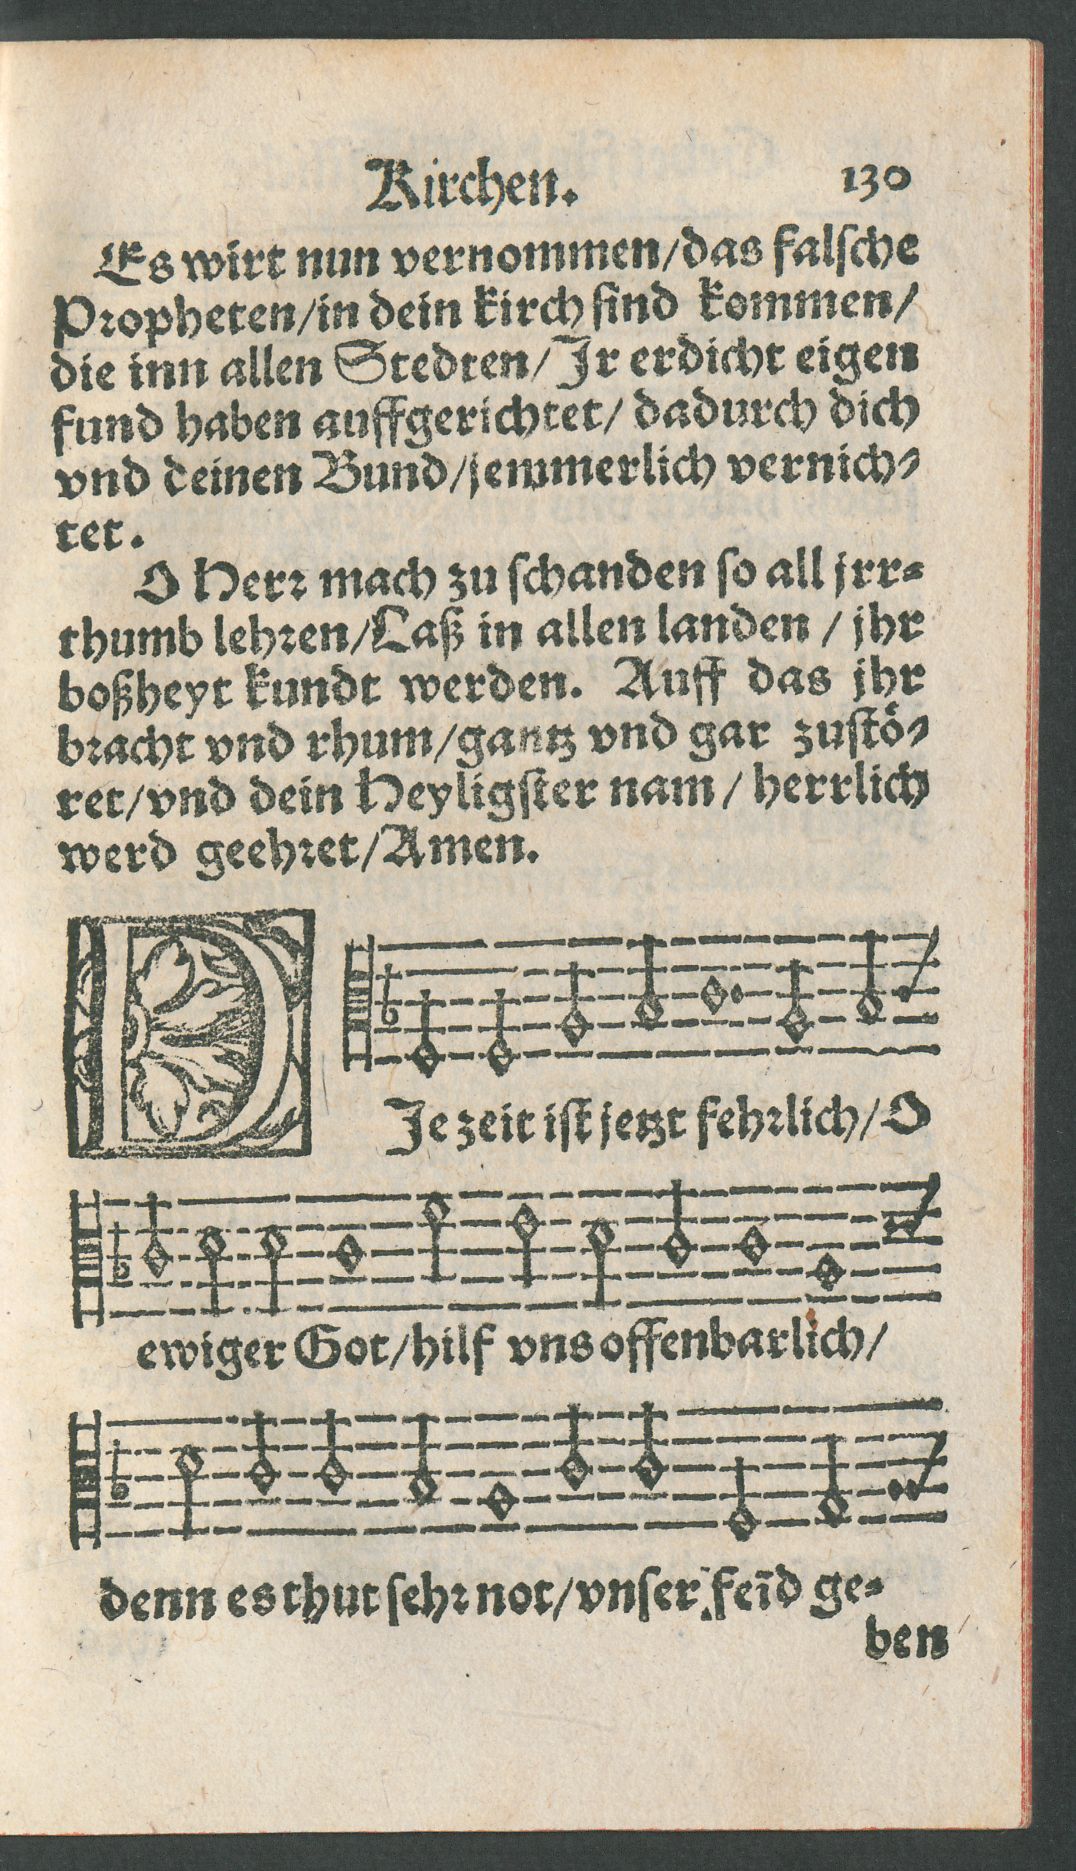 Kirchen. 130
Es wirt nun vernommen/das falsche
Propheten/in dein kirch sind kommen/
die inn allen Stedten/Jr erdicht eigen
fund haben auffgerichtet/ dadurch dich
vnd deinen Bund/jemmerlich vernich⸗
tet.
O Herr mach zu schanden so all jrr⸗
thumb lehren/Laß in allen landen / jhr
boßheyt kundt werden. Auff das jhr
bracht vnd rhum/gantz vnd gar zustö⸗
ret/vnd dein Heyligster nam/ herrlich
werd geehret/Amen.
DJe zeit ist jetzt fehrlich/O
ewiger Got/hilf vns offenbarlich/
denn es thut sehr not/vnser feīd ge⸗
ben